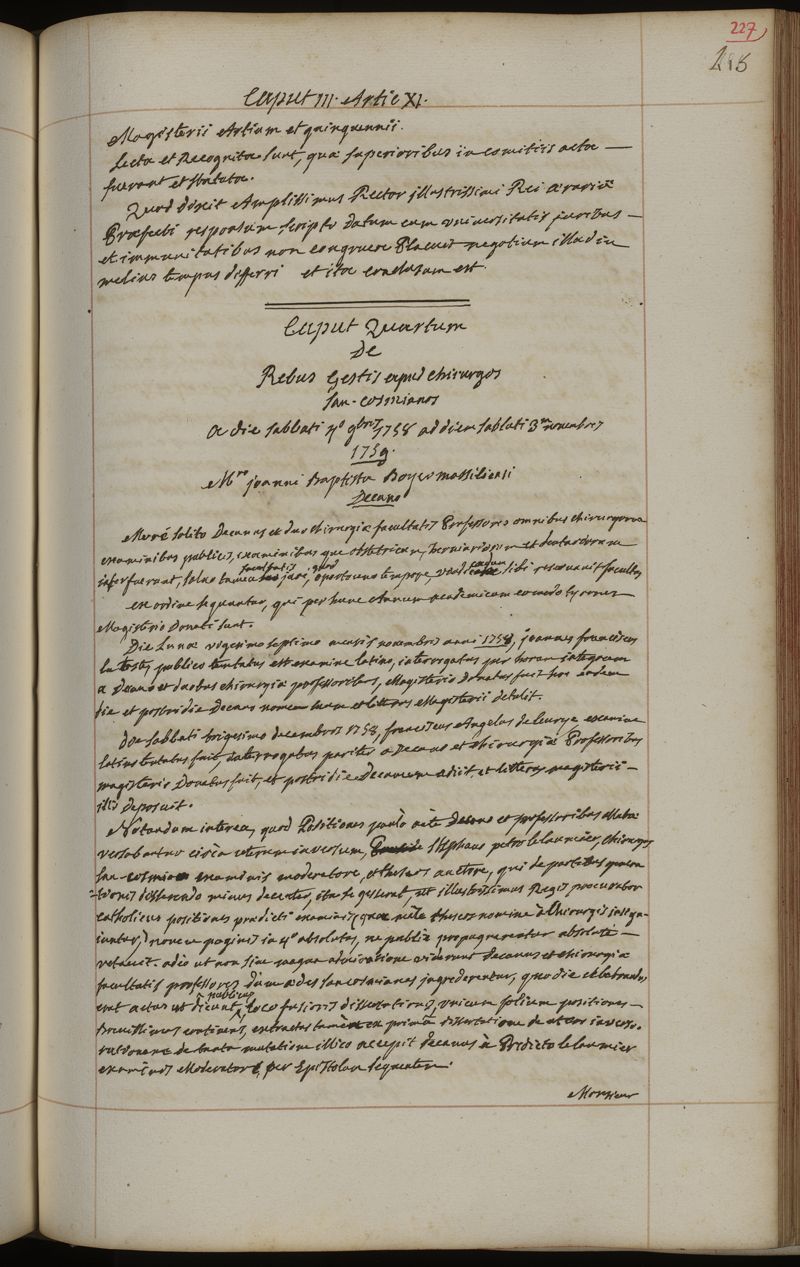 227
Caput III. Artic XI.
Magisterii Artium et quinquennii.
Lecta et Recognita sunt, quæ superioribus in comitiis acta —
fuerant et statuta.
Quod dixit Amplissimus Rector illustrissimi Rei ærariæ
Præfecti responsum scripto datum cum universitatis juribus —
et immunitatibus non congruere Placuit negotium illud in
melius tempus differri et ita conclusum est.
Caput Quartum
De
Rebus Gestis apud chirurgos
San-cosmianos
A die sabbati 4º 9bris 1758 ad diem sabbati 3am novembris
1759.
Mro joanni Baptista Boyer massiliensi
Decano
More solito Decanus et duo chirurgiæ facultatis Professores omnibus chirurgorum
examinibus publicis, examinibusque obstetricum, herniariorum et dentariorum
interfuerunt, salvo tamen facultatis jure, quod opportuno tempore, sibi reservavit facultas
ex ordine sequuntur, qui per hunc Annum academicum eomodo tyrones
Magisterio Donati sunt.
Die Lunæ vigesimo septimo mensis novembris anni 1758, joannes franciscus
la teste, publico tentatus est examine latino, interrogatus per horam integram
a Decano et duobus chirurgiæ professoribus, Magisterio donatus fuit hos eadem
die et postridie Decano nomen suum et litteras Magisterii detulit.
Die sabbati trigesimo decembris 1758, franciscus Angelus deleurye examine
latino tentatus fuit, interrogatus pariter a Decano et chirurgiæ Professoribus
magisterio Donatus fuit, et postridie Decanum adiit et litteras magisterii —
illi deposuit.
Notandum interea, quod Positiones paulo ante Decano et professoribus oblatæ
versabantur circa uterum inversum, Stephano petro lelaumier, chirurgo
san-cosmiano examinis moderatore, et theseos auctore, qui de partibus genera
-tionis disserendo minus decenter, ita se gesserat, ut illustrissimus Regis procurator
catholicus positiones prædicti examinis (quæ ritè theseos nomine à Chirurgis insigni-
iuntur,) novem paginis in 4º absolutas, ne publicæ propugnarentur absolutè —
vetuerit. adeo ut non sine magna admiratione viderunt decanus et chirurgiæ
facultatis professores dum ædes san cosmianas ingrederentur, quo die celebrandus
erat actus ut dicunt publicus, loco fusioris dissertationis, unicum folium positiones —
Brevissimas continens, extractas tamen ex prima dissertatione de utero inverso.
rationem de tanta mutatione illico accepit decanus à Prædicto lelaumier
examinis Moderatore, per Epistolam sequentem.
Monsieur